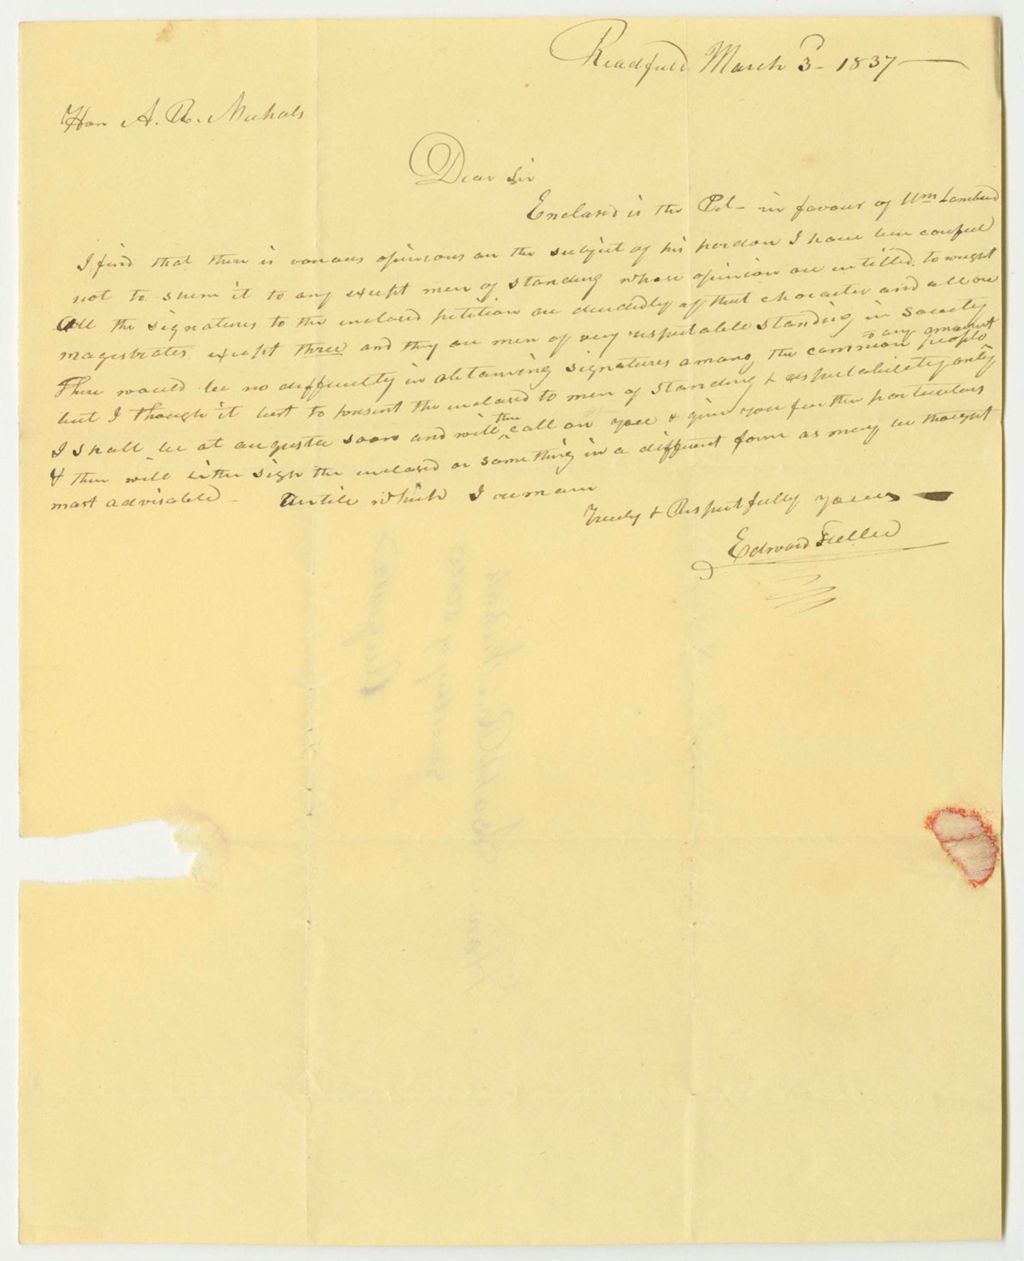 Readfield March 3 - 1837
Hon A. R. Nichols
Dear Sir
Enclosed is the Pet- in favour of Wm Lambard
I find that there is various opinions on the subject of his pardon I have been careful
not to shew it to any except men of standing whose opinion are intitled to weight
All the signatures to the inclosed petition are decidedly of that character and all are
magistrates except three and they are men of very respectable standing in Society
There would be no difficulty in obtaining signatures among the common people
to any amount
but I though it best to present the inclosed to men of standing & respectability only
I shall be at augusta soon and will then call on you & give you further particulars
& then will either sign the inclosed or something in a different form as may be thought
most advisable - Untile which I remain
Truly & Respectfully yours
Edward Fuller
Augusta
Secretary of State
Hon. R. Nichols